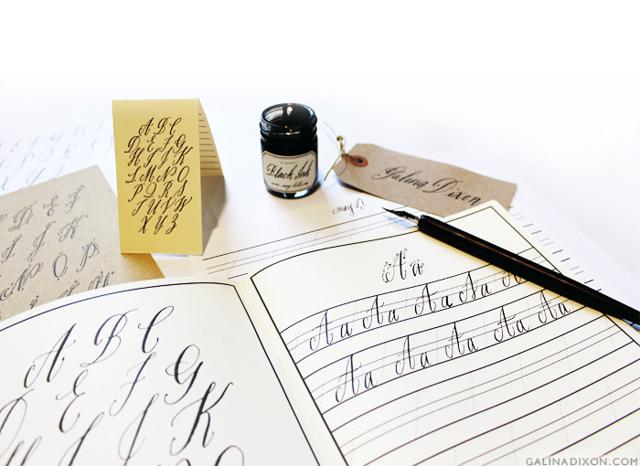 A B C
D E F G
H I J K
L M N O
P Q R S
T U V W
X Y Z
Black Ink
Galina Dixon
I J K
N O P
Aa
Aa Aa Aa Aa Aa
Aa Aa Aa Aa Aa
A B C
E F G
I J K
GALINADIXON.COM